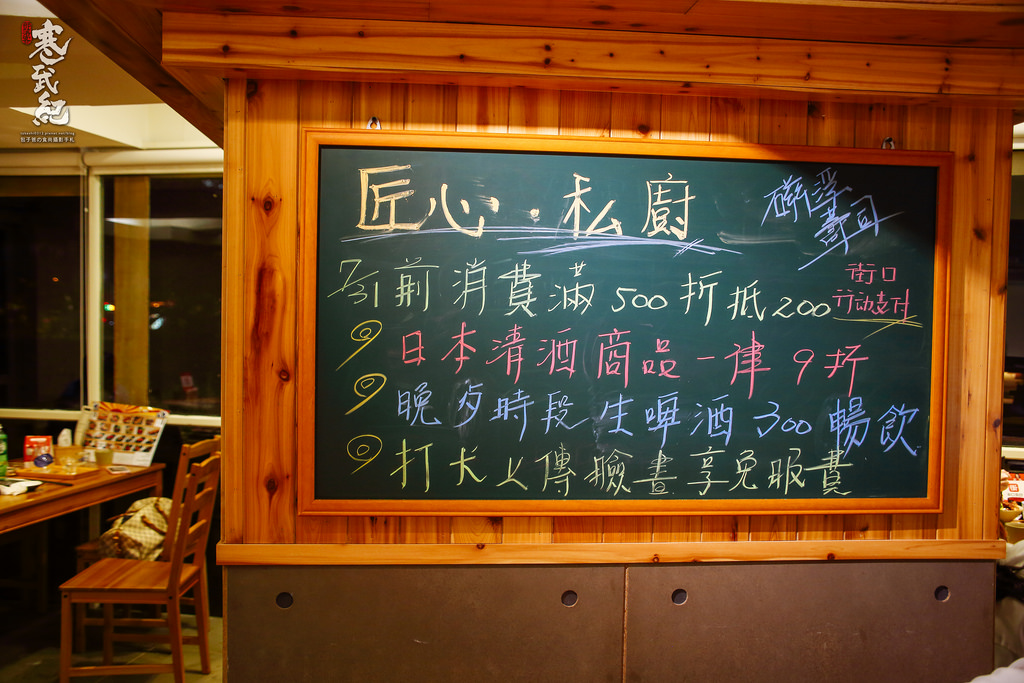 寒武紀
匠心‧私廚
磁浮壽司
7/31前消費滿500折抵200
街口
行动支付
日本清酒商品一律9折
晚歺時段生啤酒300暢飲
打卡上傳臉書享免服費